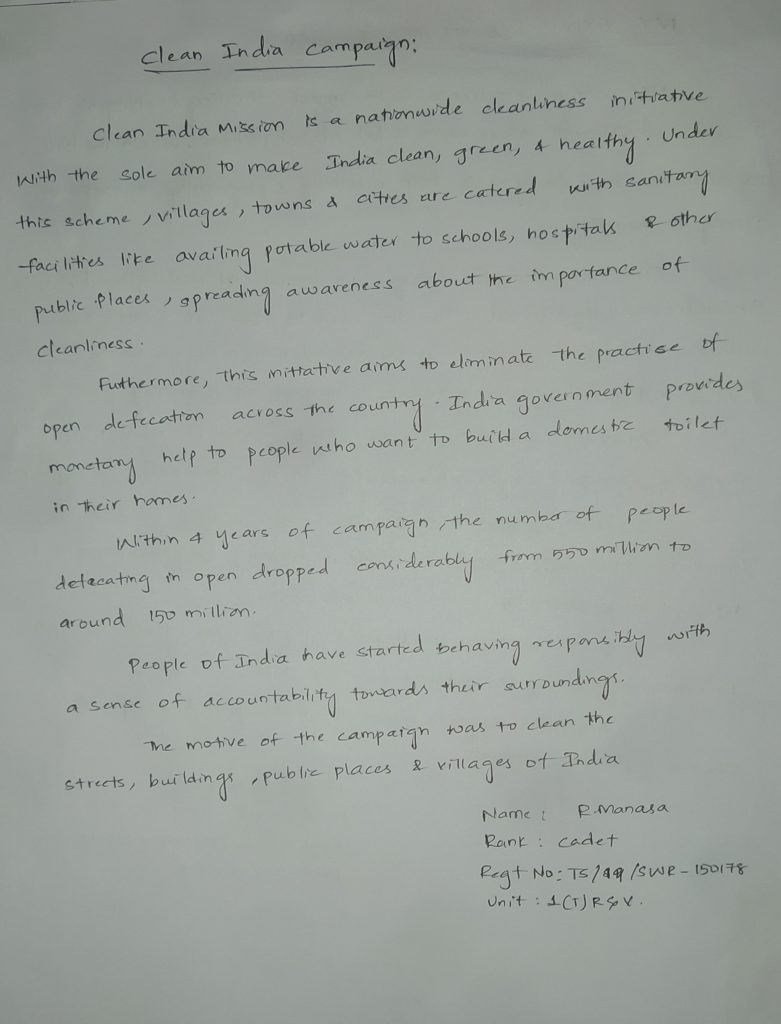 Clean India Campaign:
Clean India Mission is a nationwide cleanliness initiative
With the sole aim to make India clean, green, & healthy. Under
this scheme, villages, towns & cities are catered with sanitary
facilities like availing potable water to schools, hospitals & other
public places, spreading awareness about the importance of
Cleanliness.
Futhermore, This initiative aims to eliminate the practise of
open defecation across the country. India government provides
monetary help to people who want to build a domestic toilet
in their homes.
Within 4 years of campaign, the number of people
defecating in open dropped considerably from 550 million to
around 150 million.
People of India have started behaving responsibly with
a sense of accountability towards their surroundings.
The motive of the campaign was to clean the
streets, buildings, public places & villages of India
Name: R.Manasa
Rank: Cadet
Regt No: TS/19/SWR-150178
Unit: 1(T)